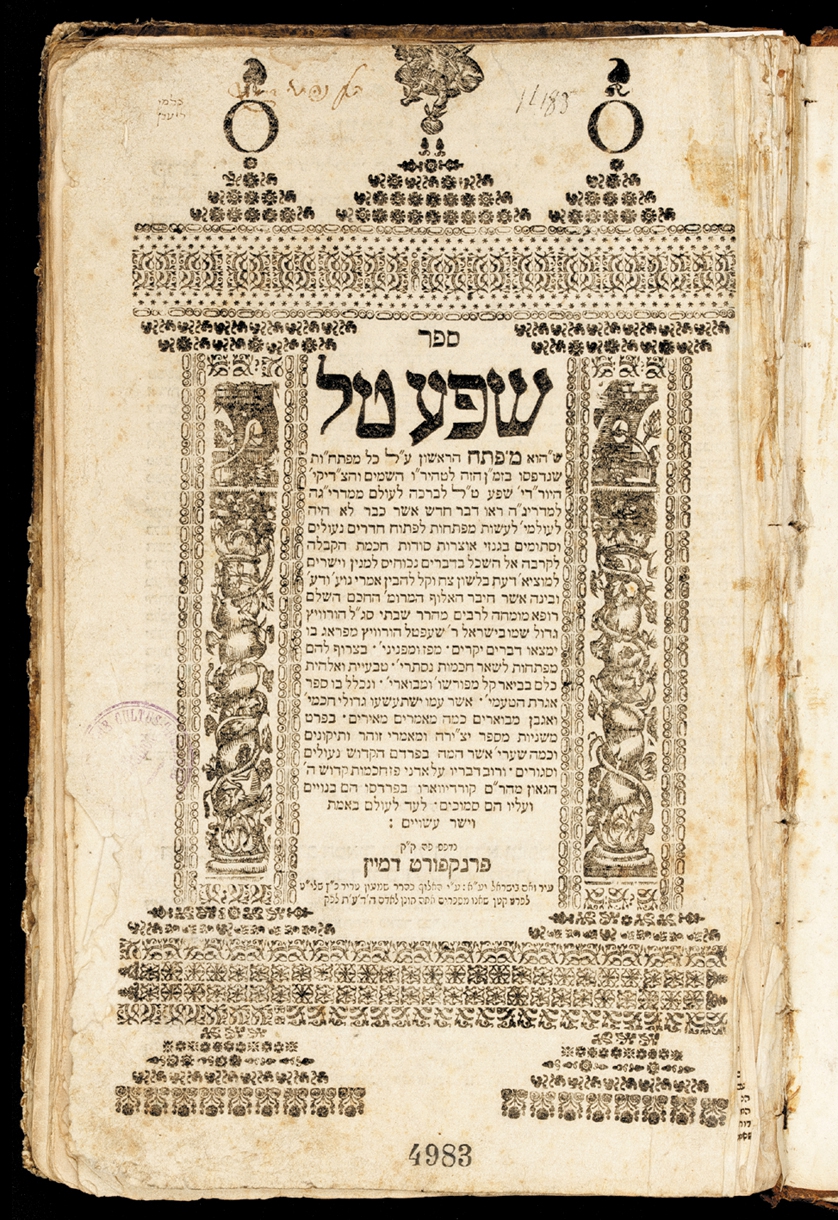 11183
ספר
שפע טל
ש״הוא מ׳פתח הראשון ע״ל כל מפתח״ות
שנדפסו בזמ״ן הזה לטהיר״ו השמים והצ״דיקי׳
היור״די׳ שפע ט״ל לברכה לעולם ממדרי״גה
למדריג״ה ראו דבר חדש אשר כבר לא היה
לעולמי׳ לעשות מפתחות לפתוח חדרים נעולים
וסתומים בגנזי אוצרות סודות חכמת הקבלה
לקרבה אל השכל בדברים נכוחים למבין וישרים
למוציא׳ דעת בלשון צח וקל להבין אמרי נוע׳ ודע׳
ובינה אשר חיבר האלוף המרומ׳ החכם השלם
רופא מומחה לרבים מהרר שבתי סג״ל הורוויץ
גדול שמו בישראל ר׳ שעפטל הורוויץ מפראג בו
ימצאו דברים יקרים· מפז ומפניני׳· בצרוף להם
מפתחות לשאר חכמות נסתרי׳· טבעיית ואלהית
כלם בביאר קל מפורשו׳ ומבוארי׳· ונכלל בו ספר
אגרת הטעמי׳· אשר עמו ישתעשעו גדולי חכמי׳
ואגבן מבוארים כמה מאמרים מאירים· בפרט
משניות מספר יצ״ירה ומאמרי זוהר ותיקונים
וכמה שערי׳ אשר המה בפרדס הקדוש נעולים
וסגורים· ורוב דבריו על אדני פז חכמות קדוש ה׳
הגאון מהר״ם קורדיווארו בפרדסו הם בנויים
ועליו הם סמוכים· לעד לעולם באמת
וישר עשויים :
נדפס פה ק״ק
פרנקפורט דמיין
עיר ואם בישראל יע״א: ע״י האלוף
לפרט קטן
CULTUS
4983